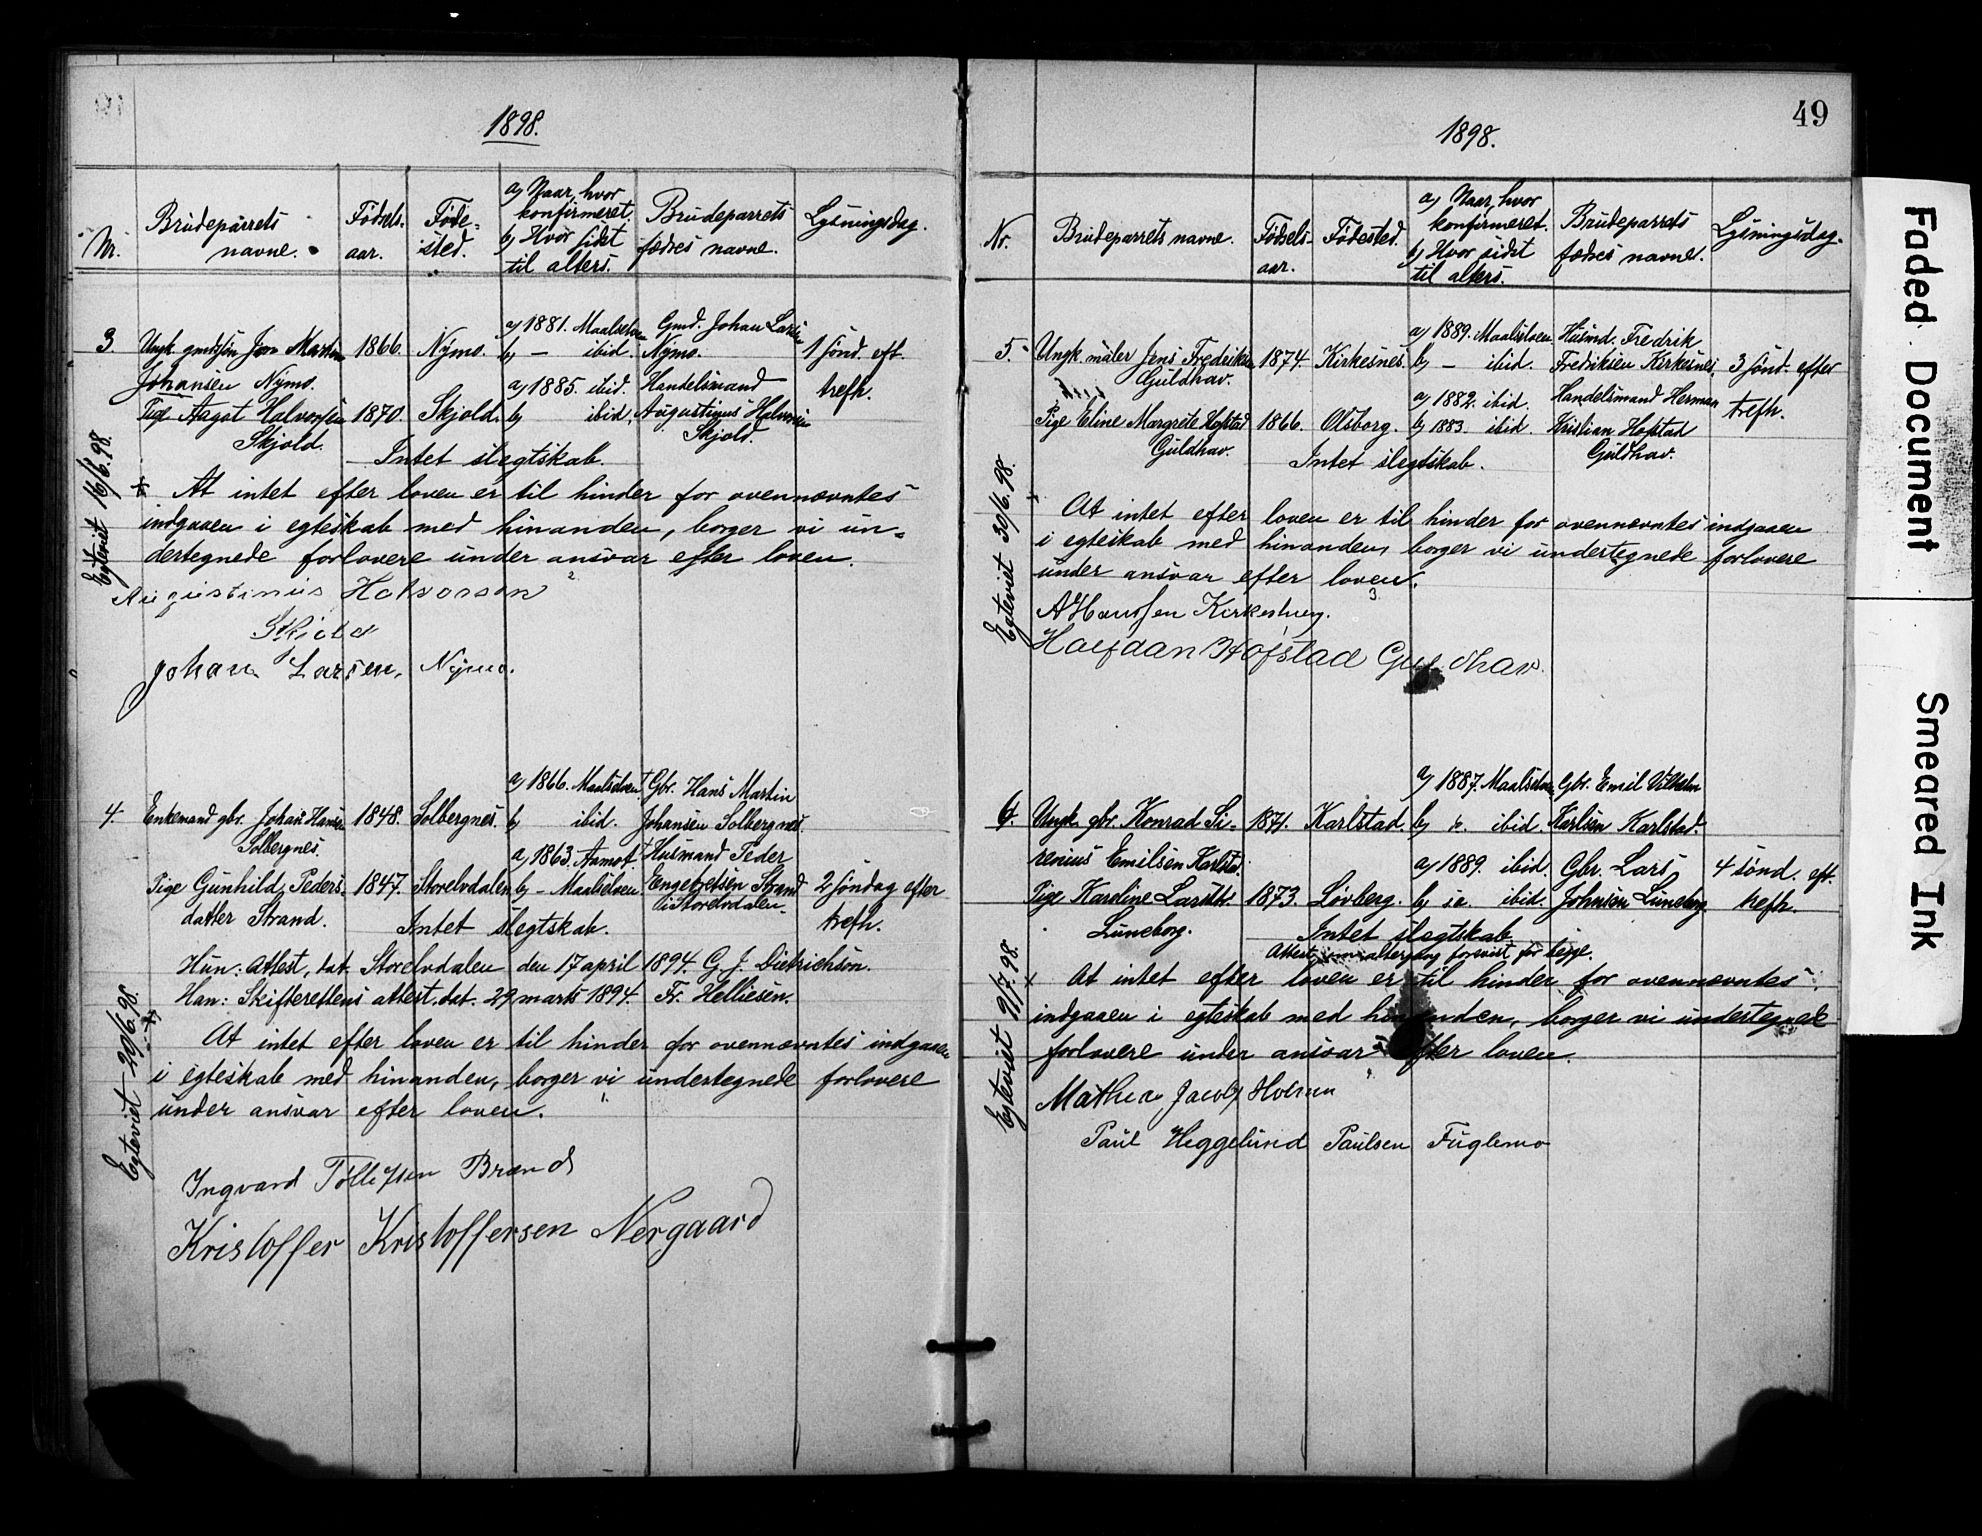 1898.
Nr.
Brudeparrets navne.
Fødselsaar.
Fødested.
a) Naar, hvor konfirmeret.
b) Hvor sidst til alters.
Brudeparrets fædres navne.
Lysningsdag.
3. Ungk. gmdsøn Martin 1866. Nymo. a) 1881. Maalselven Gmd. Johan Larsen 1 sønd. eft.
Johansen Nymo. b) — ibid. Nymo. trefh.
Pige Aagot Halvorsen 1870. Skjold. a) 1885. ibid. Handelsmand
Skjold. b) ibid. Augustinus Halvorsen Skjold.
Intet slegtskab.
Egteviet 16/6.98.
At intet efter loven er til hinder for ovennævntes
indgaaen i egteskab med hinanden, borger vi un-
dertegnede forlovere under ansvar efter loven.
Augustinus Halvorsen
Skjold
Johan Larsen, Nymo.
4. Enkemand gbr. Johan Hansen 1848. Solbergnes. a) 1866. Maalselven † Gbr. Hans Martin
Solbergnes. b) ibid. Johansen Solbergnes.
Pige Gunhild Peders- 1847. Storelvdalen a) 1863. Aamot † Husmand Peder 2 søndag efter
datter Strand. b) - Maalselven Engebretsen Strand trefh.
i Storelvdalen.
Intet slegtskab.
Hun: Attest, dat. Storelvdalen den 17 april 1894. G. J. Dietrichson.
Han: Skifterettens attest. dat. 29 marts 1894. Fr. Helliesen.
Egteviet 29/6.98.
At intet efter loven er til hinder for ovennævntes indgaaen
i egteskab med hinanden, borger vi undertegnede forlovere
under ansvar efter loven.
Ingvard Tollefsen Brand
Kristoffer Kristoffersen Nergaard
49
1898.
Nr.
Brudeparrets navne.
Fødsels-aar.
Fødested.
a) Naar, hvor konfirmeret.
b) Hvor sidst til alters.
Brudeparrets fædres navne.
Lysningsdag.
5. Ungk. maler Jens Fredriksen 1874. Kirkesnes. a) 1889. Maalselven Husmd. Fredrik 3 sønd. efter
Guldhav. b) — ibid. Fredriksen Kirkesnes trefh.
Pige Eline Margrete Hofstad 1866. Olsborg. a) 1882. ibid. Handelsmand Herman
Guldhav. b) 1883. ibid. Kristian Hofstad
Guldhav.
Intet slegtskab.
Egteviet 30/6.98.
At intet efter loven er til hinder for ovennævntes indgaaen
i egteskab med hinanden, borger vi undertegnede forlovere
under ansvar efter loven.
A Hanssen
Halfdan Hofstad Guldhav.
6. Ungk. gbr. Konrad Si- 1871. Karlstad a) 1887. Maalselven Gbr. Emil Vilhelm
renius Emilsen Karlstad. b) ibid. Karlsen Karlstad.
Pige Karoline Larsdtr. 1873. Løvberg. a) 1889. ibid. Gbr. Lars 4 sønd. eft.
Luneborg. b) ibid. Johnsen Luneborg trefh.
Intet slegtskab.
Attest om altergang forevist for begge.
Egteviet 19/7.98.
At intet efter loven er til hinder for ovennævntes
indgaaen i egteskab med hinanden, borger vi undertegnede
forlovere under ansvar efter loven.
Mathias Jacob
Paul Heggelund Paulsen Fuglemo
Faded Document
Smeared Ink